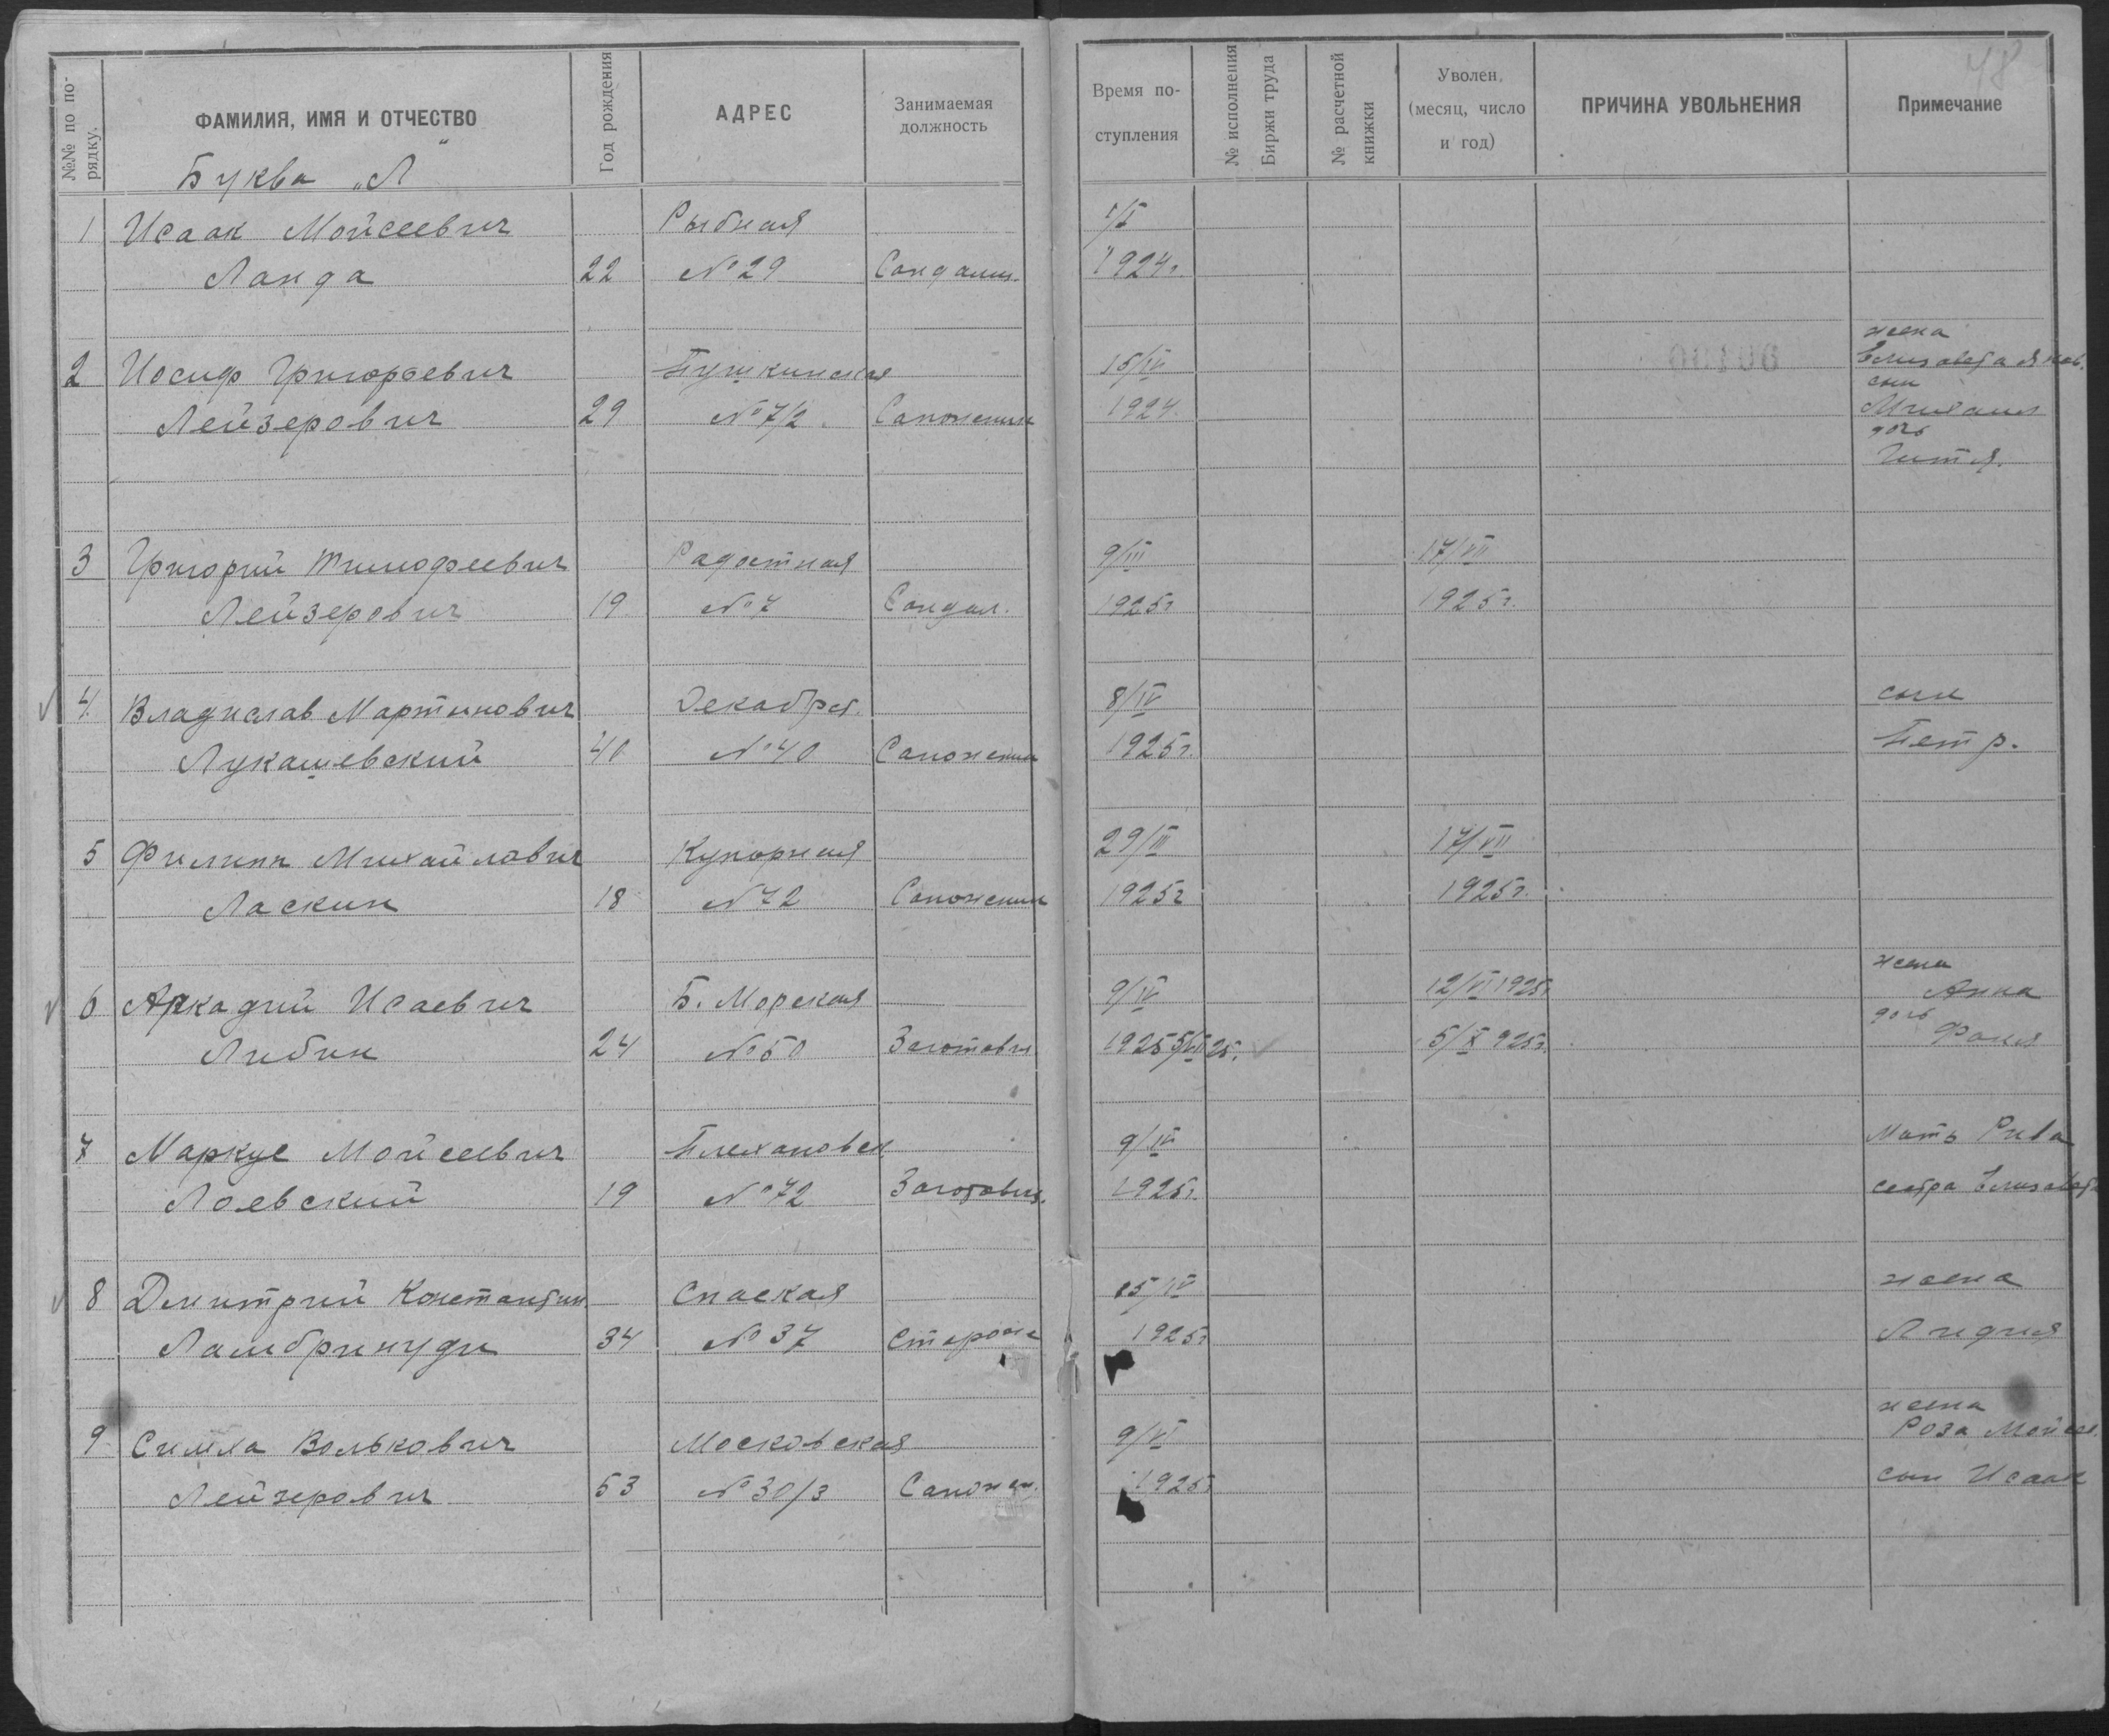 №№ по порядку.
ФАМИЛИЯ, ИМЯ И ОТЧЕСТВО
Год рождения
АДРЕС
Занимаемая должность
Время поступления
№ исполнения Биржи труда
№ расчетной книжки
Уволен (месяц, число и год)
ПРИЧИНА УВОЛЬНЕНИЯ
Примечание
48
Буква „Л"
1 Исаак Мойсеевич Рыбная
Ланда 22 №29 Сандалищ. 1924г.
жена
2 Иосиф Григорьевич Пушкинская 15/IV Елизавета Яков.
сын
Лейзерович 29 №7/2 Сапожник 1924 Михаил
дочь
Гитя.
3 Григорий Тимофеевич Радостная 9/III 17/VII
Лейзерович 19 №7 Сандал. 1925г 1925г.
4. Владислав Мартинович Декабрст. 8/IV сын
Лукашевский 40 №40 Сапожник 1925г. Петр.
5 Филипп Михайлович Купорная 29/III 17/VII
Ласкин 18 №72 Сапожник 1925г 1925г.
жена
6 Аркадий Исаевич Б. Морская 9/IV 12/VI 1925г. Анна
дочь
Либин 24 №50 Заготовщ 1925 5/VII 25. 5/X 925г. Фаня
7 Маркус Мойсеевич Плехановск 9/IV Мать Рива
Лоевский 19 №72 Заготовщ. 1925г. сестра Елизавета
8 Дмитрий Константин Спаская 15/IV жена
Ламбринуди 34 №37 Сторож 1925г Лидия
жена
9 Симха Волькович Московская 9/VI Роза Мойсее.
Лейзерович 53 №30/3 Сапожн. 1925г сын Исаак